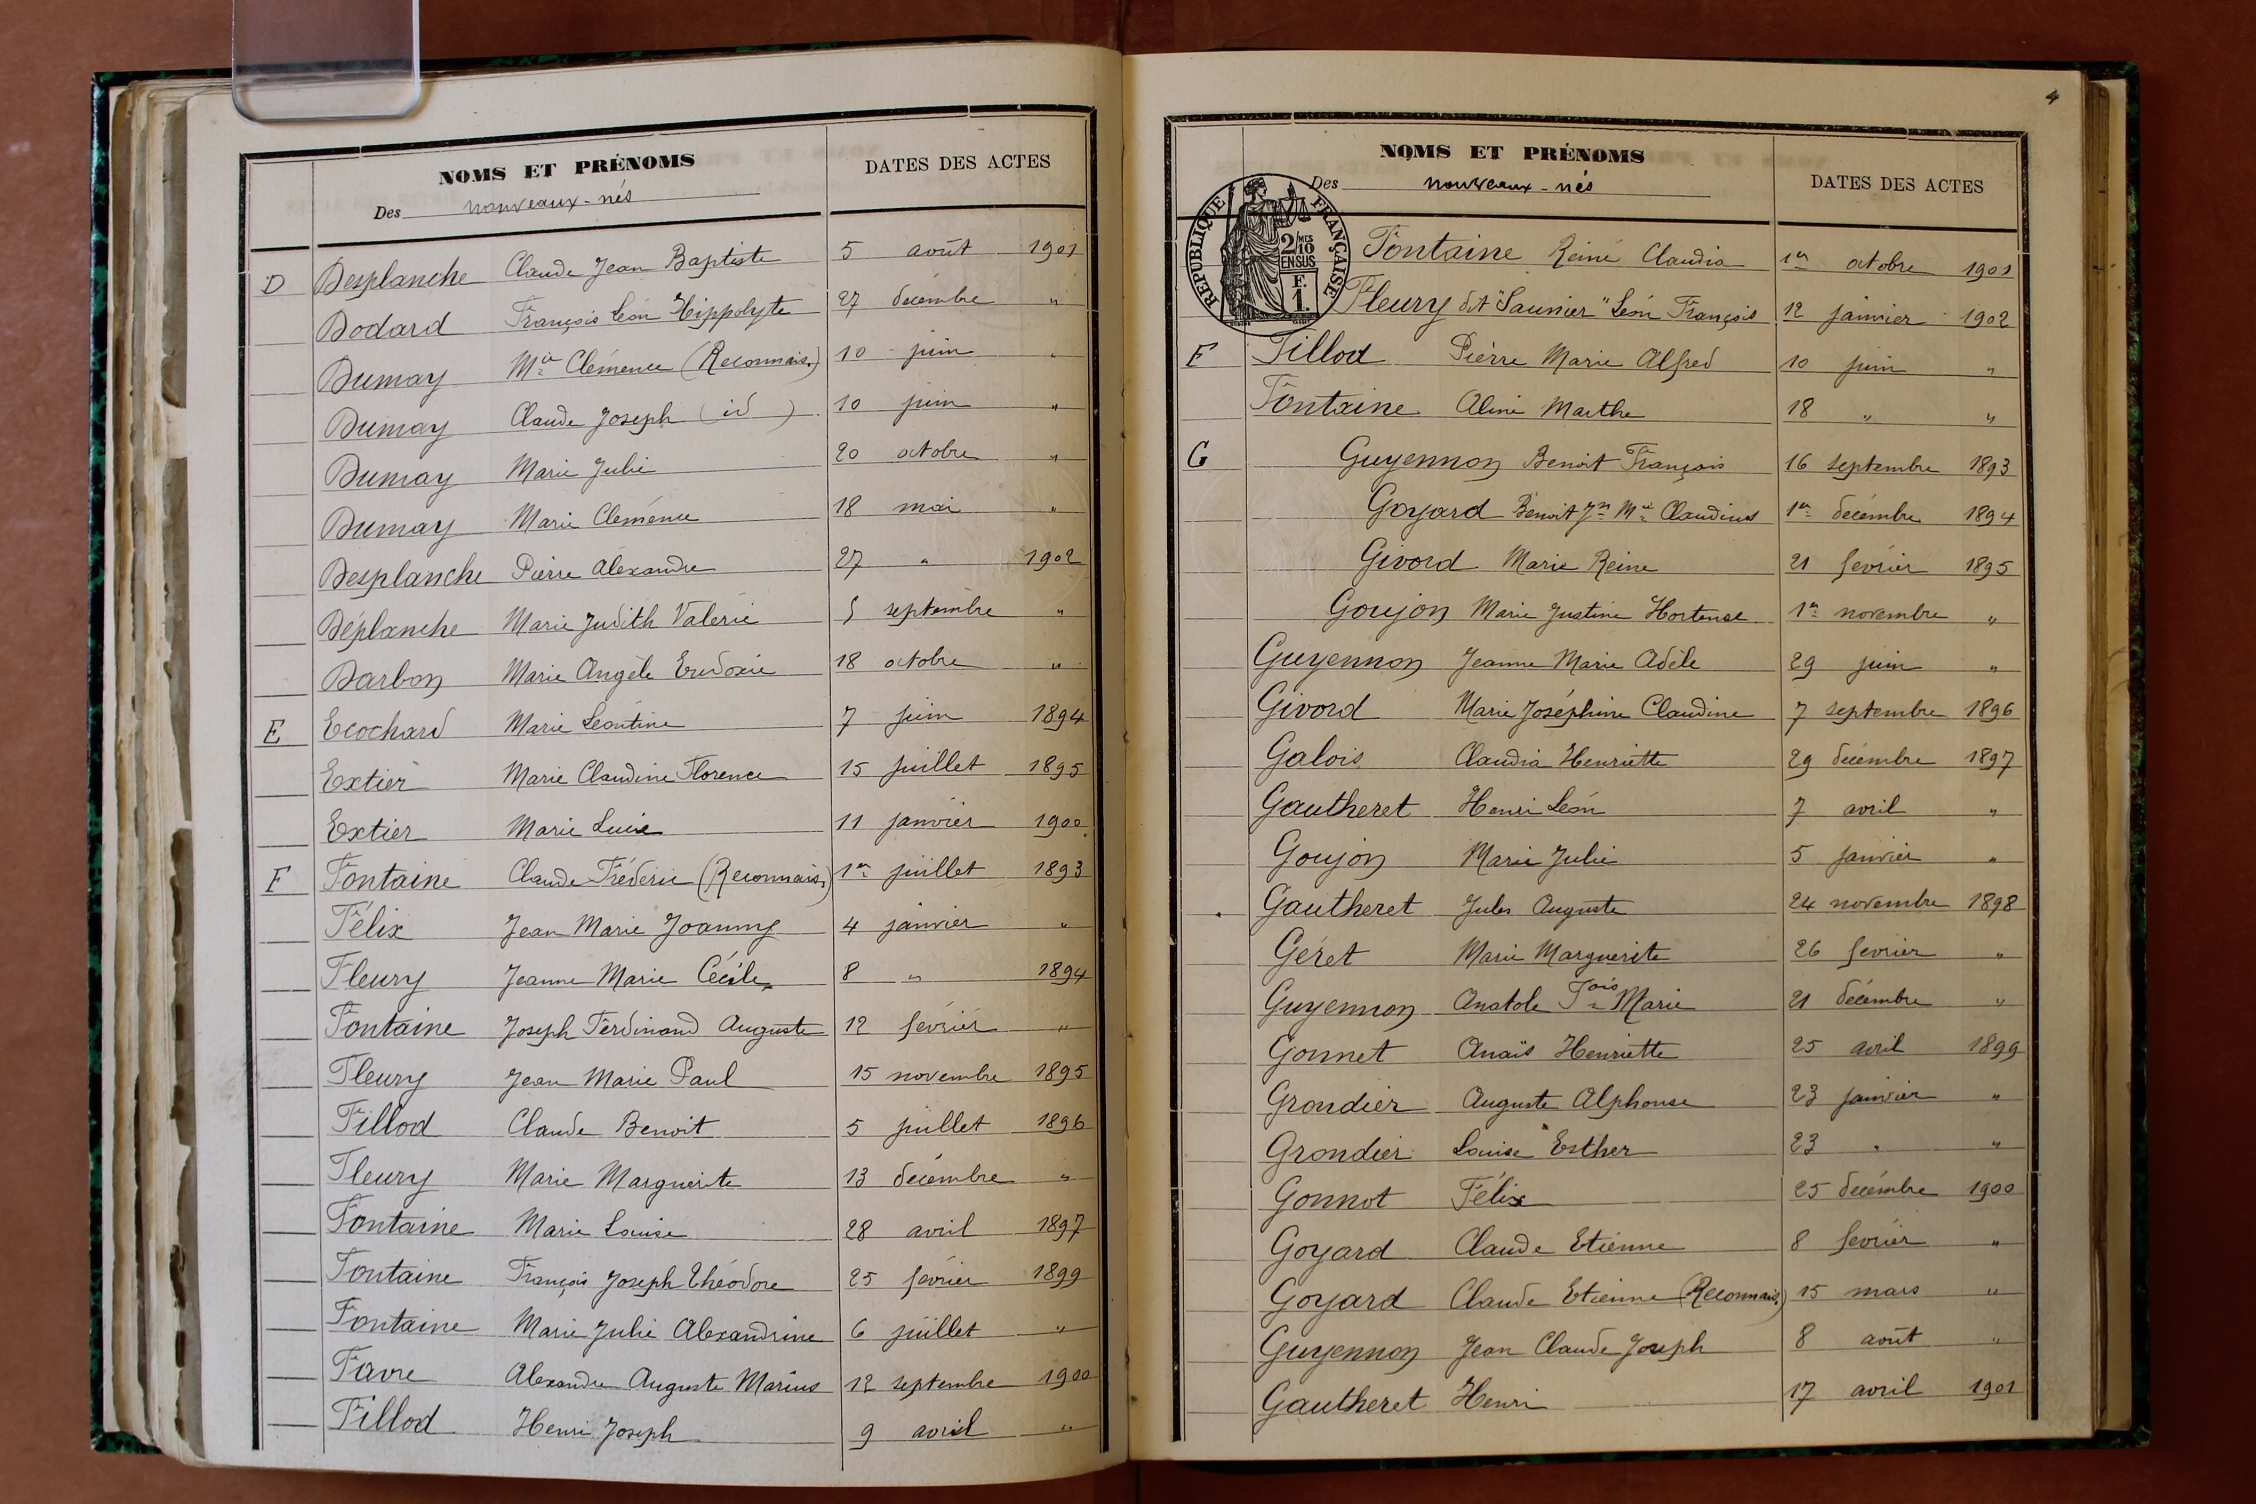 NOMS ET PRÉNOMS DATES DES ACTES
Des nouveaux-nés
D Desplanche Claude Jean Baptiste 5 août 1901
Dodard François Léon Hippolyte 27 décembre "
Dumay Mie Clémence (Reconnais.) 10 juin "
Dumay Claude Joseph (id) 10 juin "
Dumay Marie Julie 20 octobre "
Dumay Marie Clémence 18 mai "
Desplanche Pierre Alexandre 27 " 1902
Déplanche Marie Judith Valérie 5 septembre "
Darbon Marie Angèle Eudoxie 18 octobre "
E Ecochard Marie Léontine 7 juin 1894
Extier Marie Claudine Florence 15 juillet 1895
Extier Marie Lucie 11 janvier 1900
F Fontaine Claude Fréderic (Reconnais.) 1er juillet 1893
Félix Jean Marie Joanny 4 janvier "
Fleury Jeanne Marie Cécile 8 " 1894
Fontaine Joseph Ferdinand Auguste 12 février "
Fleury Jean Marie Paul 15 novembre 1895
Fillod Claude Benoit 5 juillet 1896
Fleury Marie Marguerite 13 décembre "
Fontaine Marie Louise 28 avril 1897
Fontaine François Joseph Théodore 25 février 1899
Fontaine Marie Julie Alexandrine 6 juillet "
Favre Alexandre Auguste Marius 12 septembre 1900
Fillod Henri Joseph 9 avril "
4
NOMS ET PRÉNOMS DATES DES ACTES
Des nouveaux-nés
RÉPUBLIQUE FRANÇAISE
2/10 MES
EN SUS
F.
1.
Fontaine Reine Claudia 1er octobre 1901
Fleury dit "Saunier" Léon François 12 janvier 1902
F Fillod Pierre Marie Alfred 10 juin "
Fontaine Aline Marthe 18 " "
G Guyennon Benoit François 16 septembre 1893
Goyard Benoit Jn Mie Claudius 1er décembre 1894
Givord Marie Reine 21 février 1895
Goujon Marie Justine Hortense 1er novembre "
Guyennon Jeanne Marie Adèle 29 juin "
Givord Marie Joséphine Claudine 7 septembre 1896
Galois Claudia Henriette 29 décembre 1897
Gautheret Henri Léon 7 avril "
Goujon Marie Julie 5 janvier "
Gautheret Jules Auguste 24 novembre 1898
Géret Marie Marguerite 26 fevrier "
Guyennon Anatole Fois Marie 21 décembre "
Gonnet Anaïs Henriette 25 avril 1899
Grondier Auguste Alphonse 23 janvier "
Grondier Louise Esther 23 " "
Gonnot Félix 25 décembre 1900
Goyard Claude Etienne 8 février "
Goyard Claude Etienne (Reconnais.) 15 mars "
Guyennon Jean Claude Joseph 8 août "
Gautheret Henri 17 avril 1901